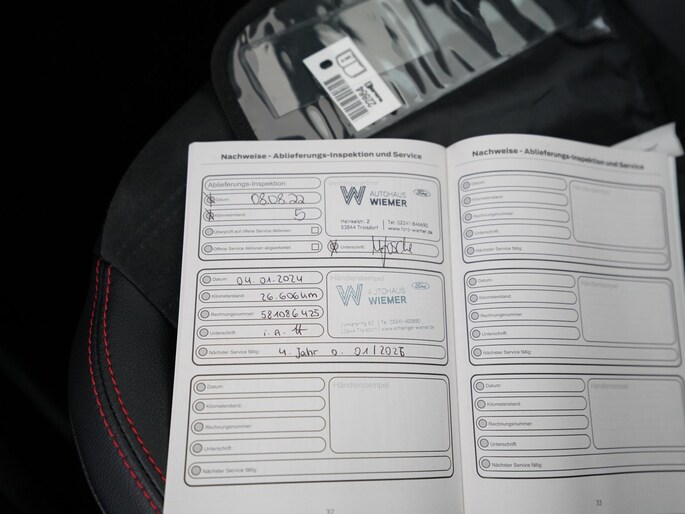 Nachweise - Ablieferungs-Inspektion und Service
Ablieferungs-Inspektion
Datum 08.08.22
Kilometerstand 5
Überprüft auf offene Service Aktionen
Offene Service Aktionen abgearbeitet
AUTOHAUS
WIEMER
Ford
53844 Troisdorf
Unterschrift
Datum 04.01.2024
Kilometerstand 26.606 km
Rechnungsnummer 581086425
Unterschrift i.A.
Nächster Service fällig 4. Jahr o. 01/2026
Händlerstempel
AUTOHAUS
WIEMER
Ford
Datum
Kilometerstand
Rechnungsnummer
Unterschrift
Nächster Service fällig
Händlerstempel
32
Nachweise - Ablieferungs-Inspektion und Service
Datum
Kilometerstand
Rechnungsnummer
Unterschrift
Nächster Service fällig
Händlerstempel
Datum
Kilometerstand
Rechnungsnummer
Unterschrift
Nächster Service fällig
Händlerstempel
Datum
Kilometerstand
Rechnungsnummer
Unterschrift
Nächster Service fällig
Händlerstempel
33